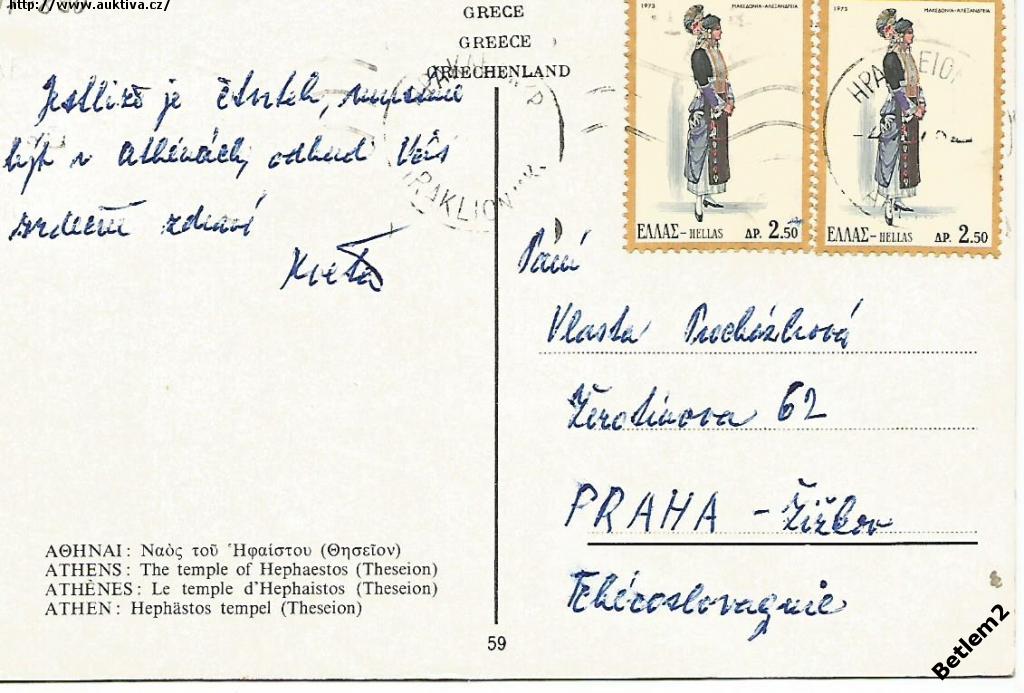 http://www.auktiva.cz/
GRECE
GREECE
GRIECHENLAND
Jestliže je čtvrtek, musíme
být v Athénách, odkud Vás
srdečně zdraví
Květa
1973
ΜΑΚΕΔΟΝΙΑ-ΑΛΕΞΑΝΔΡΕΙΑ
ΕΛΛΑΣ-HELLAS ΔΡ. 2.50
1973
ΜΑΚΕΔΟΝΙΑ-ΑΛΕΞΑΝΔΡΕΙΑ
ΕΛΛΑΣ-HELLAS ΔΡ. 2.50
IRAKLION
ΗΡΑΚΛΕΙΟΝ
Paní
Vlasta Procházková
Žerotínova 62
PRAHA - Žižkov
Tchécoslovaquie
ΑΘΗΝΑΙ: Ναὸς τοῦ Ἡφαίστου (Θησεῖον)
ATHENS: The temple of Hephaestos (Theseion)
ATHÈNES: Le temple d'Hephaistos (Theseion)
ATHEN: Hephästos tempel (Theseion)
59
Betlem2